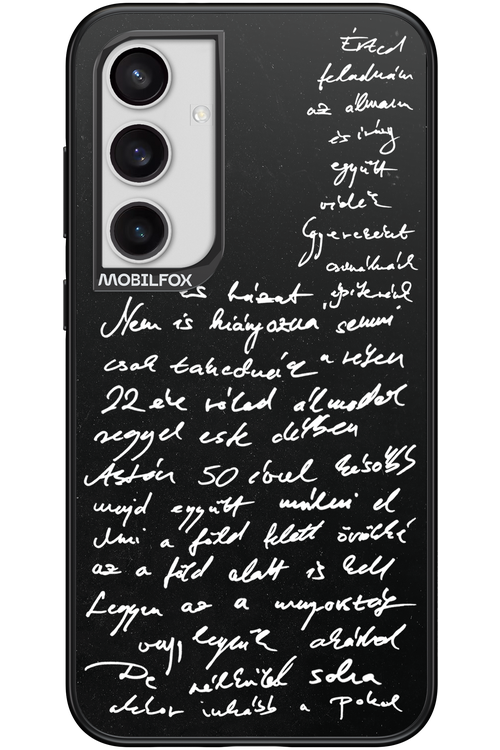 Érted
feladnám
az álmam
és irány
együtt
vidék
Gyerekeket
csinálnánk
MOBILFOX
és házat építenénk
Nem is hiányozna semmi
csak tehednéz a réten
22 éve rólad álmodok
reggel este délben
Aztán 50 évvel később
majd együtt múlni el
Ami a föld felett örökké
az a föld alatt is kell
Legyen az a mennyország
vagy legyünk akárhol
De nélküled soha
akkor inkább a pokol